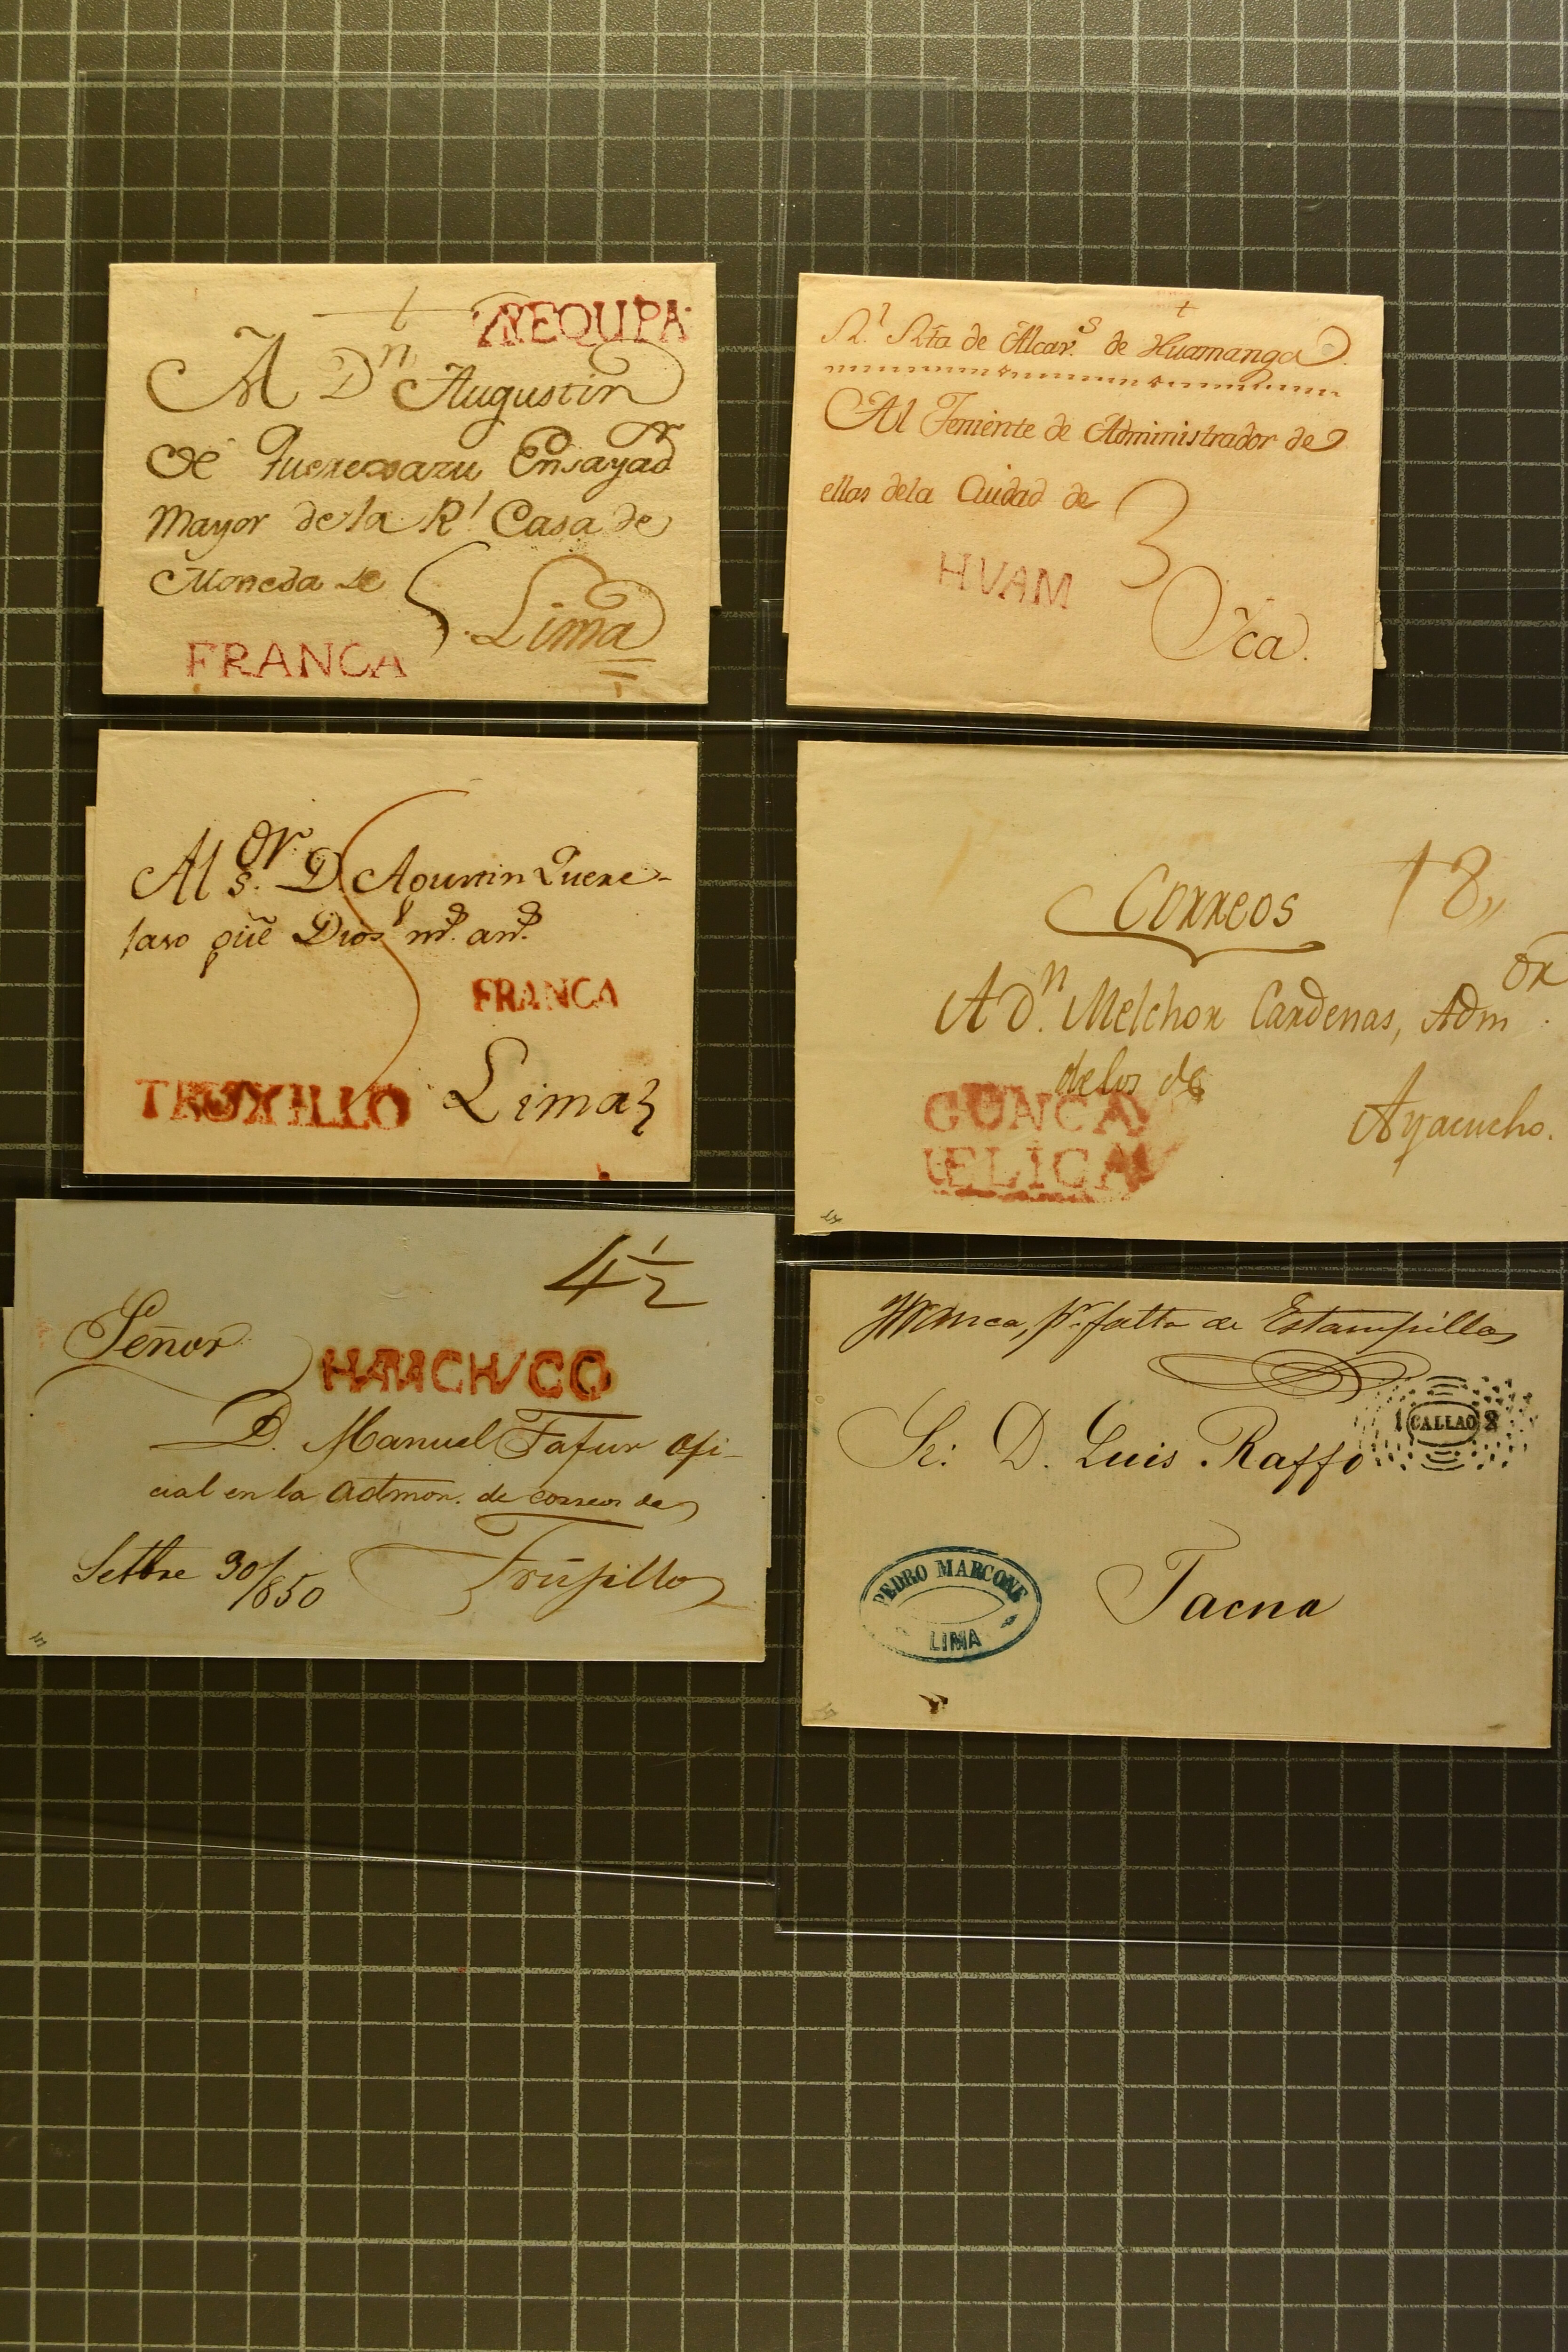 AREQUIPA
A Dn Augustin
de Querexazu Ensayadr
Mayor de la Rl Casa de
Moneda de
5 Lima
FRANCA
Rl Rta de Alcav.s de Huamanga
Al Teniente de Administrador de
ellas dela Ciudad de
3
HVAM
Yca.
Al Sor. D. Agustin Quere-
que Dios ms. as.
FRANCA
TRUXILLO
Lima
Correos
18,,
A Dn. Melchor Cardenas, Admor.
delos de
GUNCA
BELICA
Ayacucho.
4 1/2
Señor
D. Manuel Tafur ofi-
cial en la Admon. de correos de
Setbre 30/850
Trujillo
Franca, pr. falta de Estampillas
1 CALLAO 2
Sr. D. Luis Raffo
PEDRO MARCONE
LIMA
Tacna